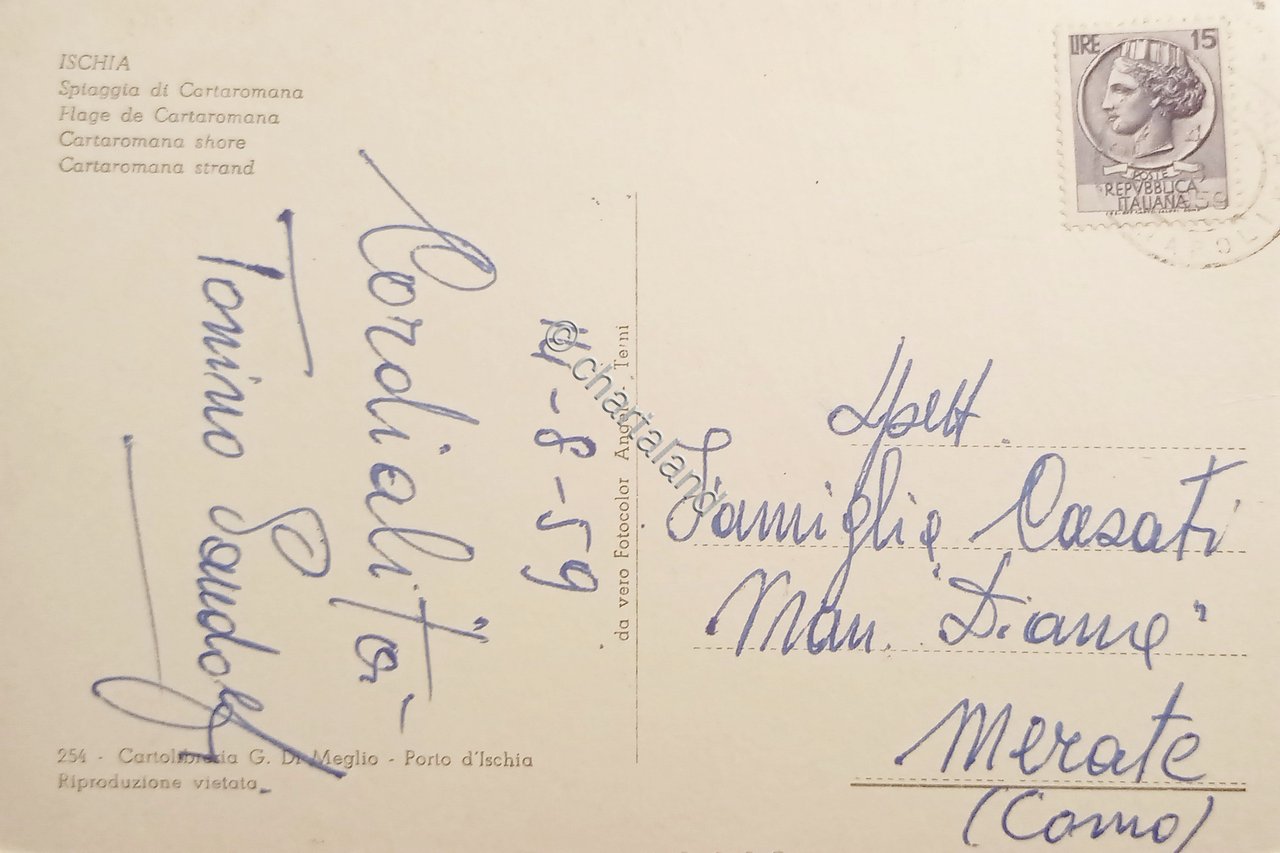 ISCHIA
Spiaggia di Cartaromana
Plage de Cartaromana
Cartaromana shore
Cartaromana strand
LIRE 15
POSTE
REPVBBLICA
ITALIANA
NAPOLI
Cordialità
Tonino
-8-59
da vero Fotocolor Terni
© chartaland
Spett.
Famiglia Casati
Man. "Diana"
Merate
(Como)
254 - Cartolibreria G. Di Meglio - Porto d'Ischia
Riproduzione vietata